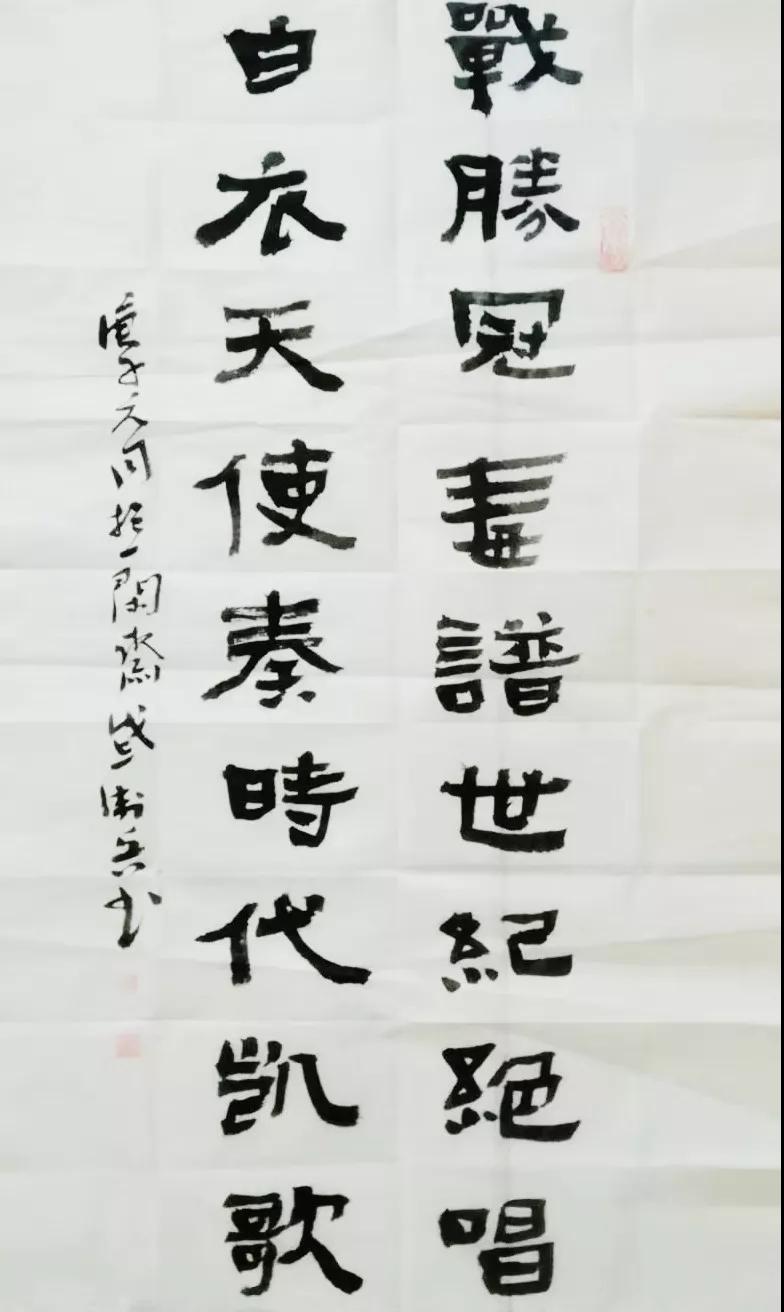 戰勝冠毒譜世紀絕唱
白衣天使奏時代凱歌
庚子元月於一閑齋